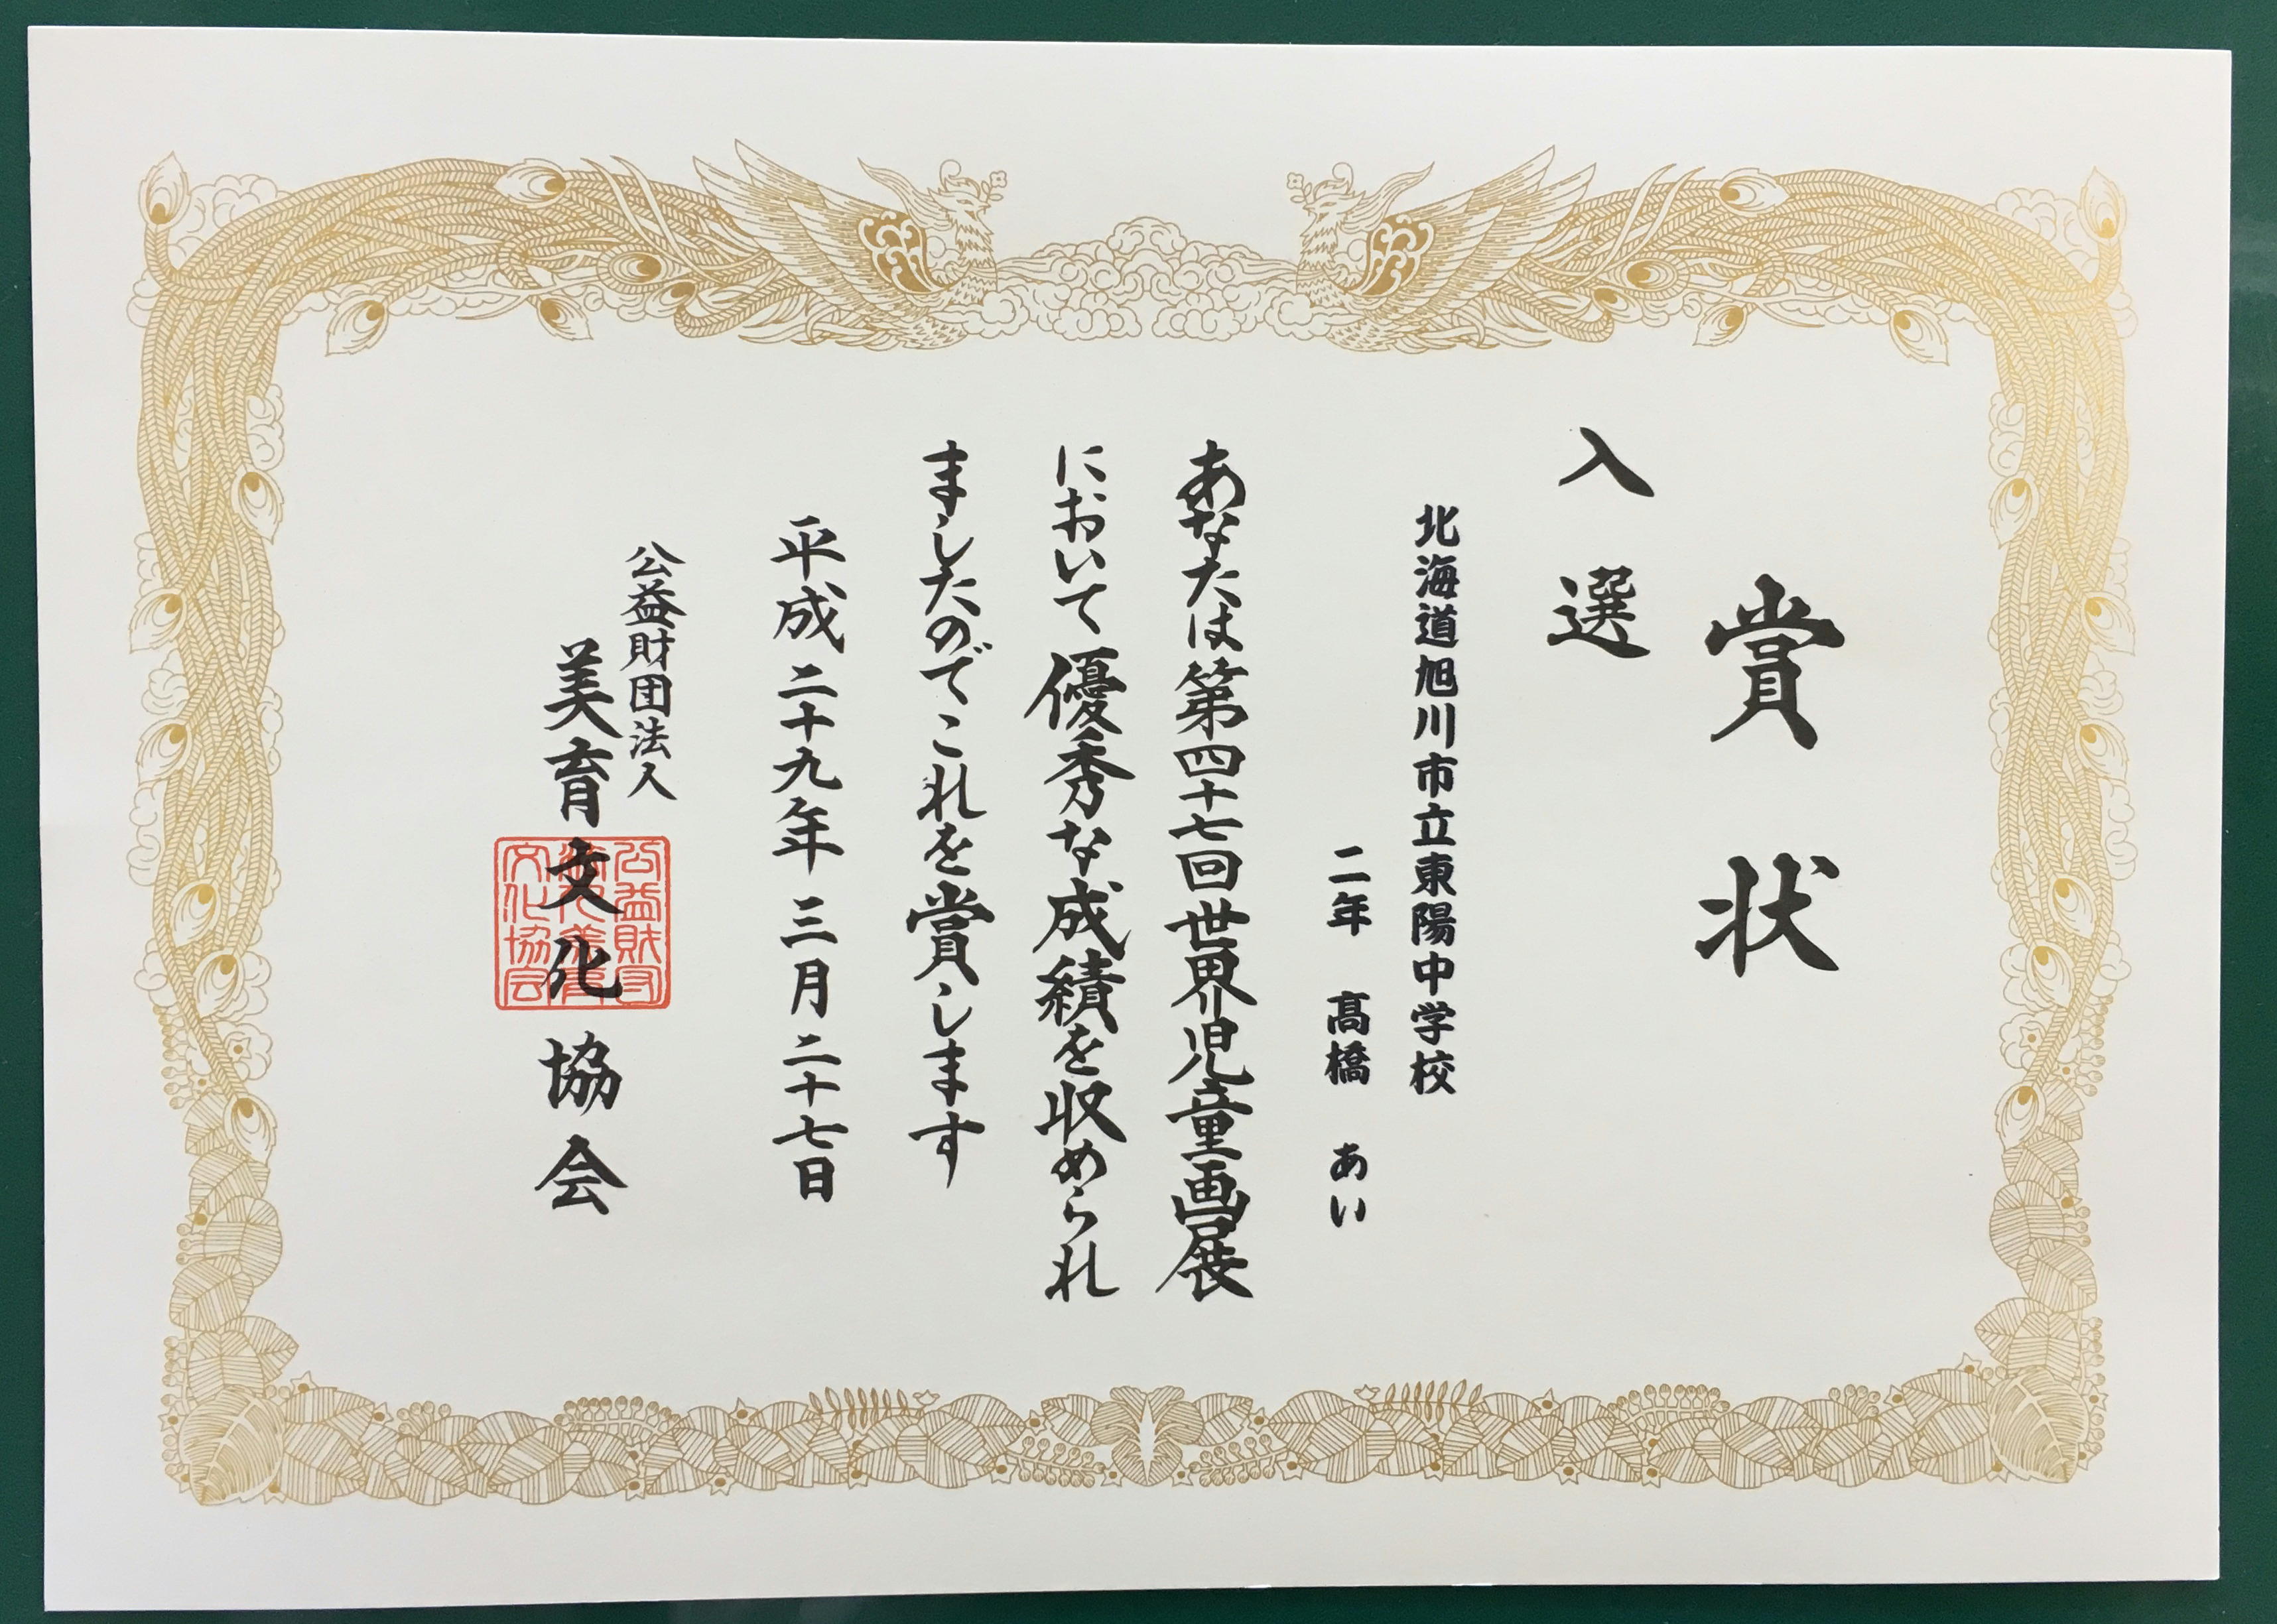 賞状
入選
北海道旭川市立東陽中学校
二年 髙橋 あい
あなたは第四十七回世界児童画展
において優秀な成績を収められ
ましたのでこれを賞します
平成二十九年三月二十七日
公益財団法人
美育文化協会